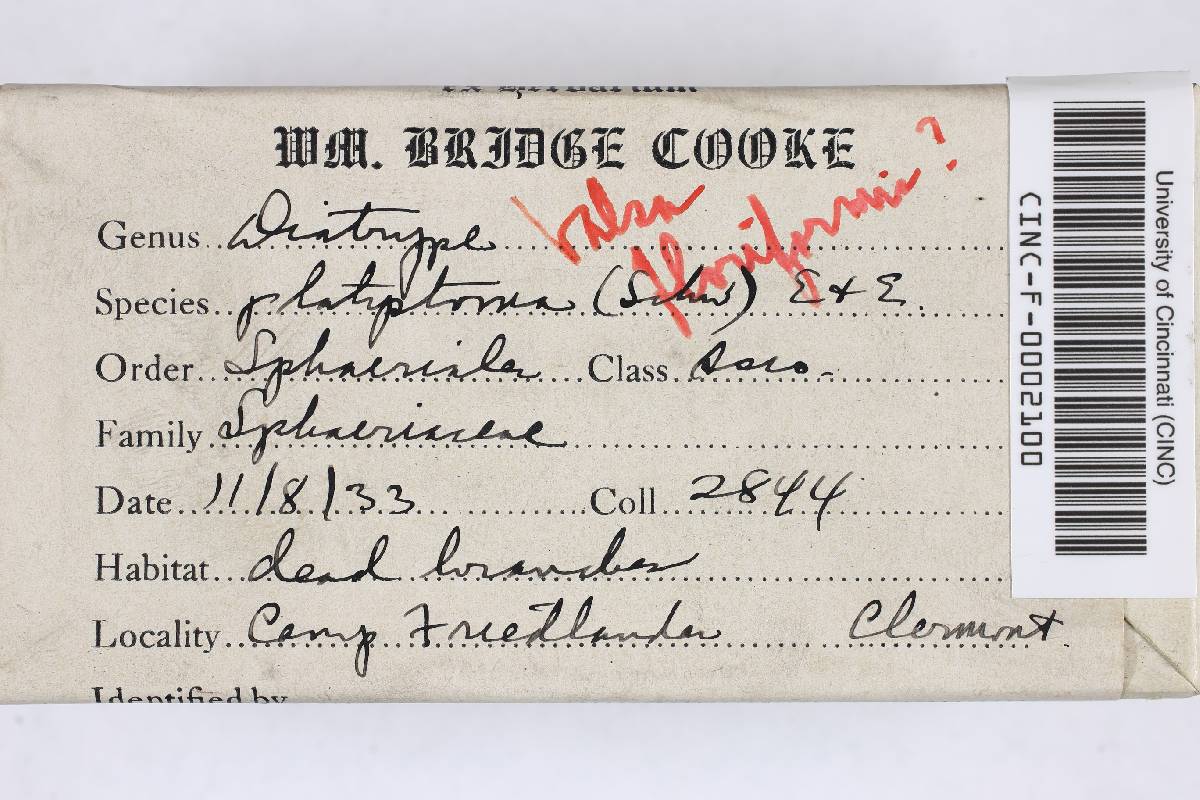 ex Herbarium
WM. BRIDGE COOKE
Valsa
floriformis ?
Genus Diatrype
Species platystoma (Schw) E & E.
Order Sphaeriales Class Asco.
Family Sphaeriaceae
Date 11/8/33 Coll 2844
Habitat dead branches
Locality Camp Friedlander Clermont
Identified by
CINC-F-0002100
University of Cincinnati (CINC)